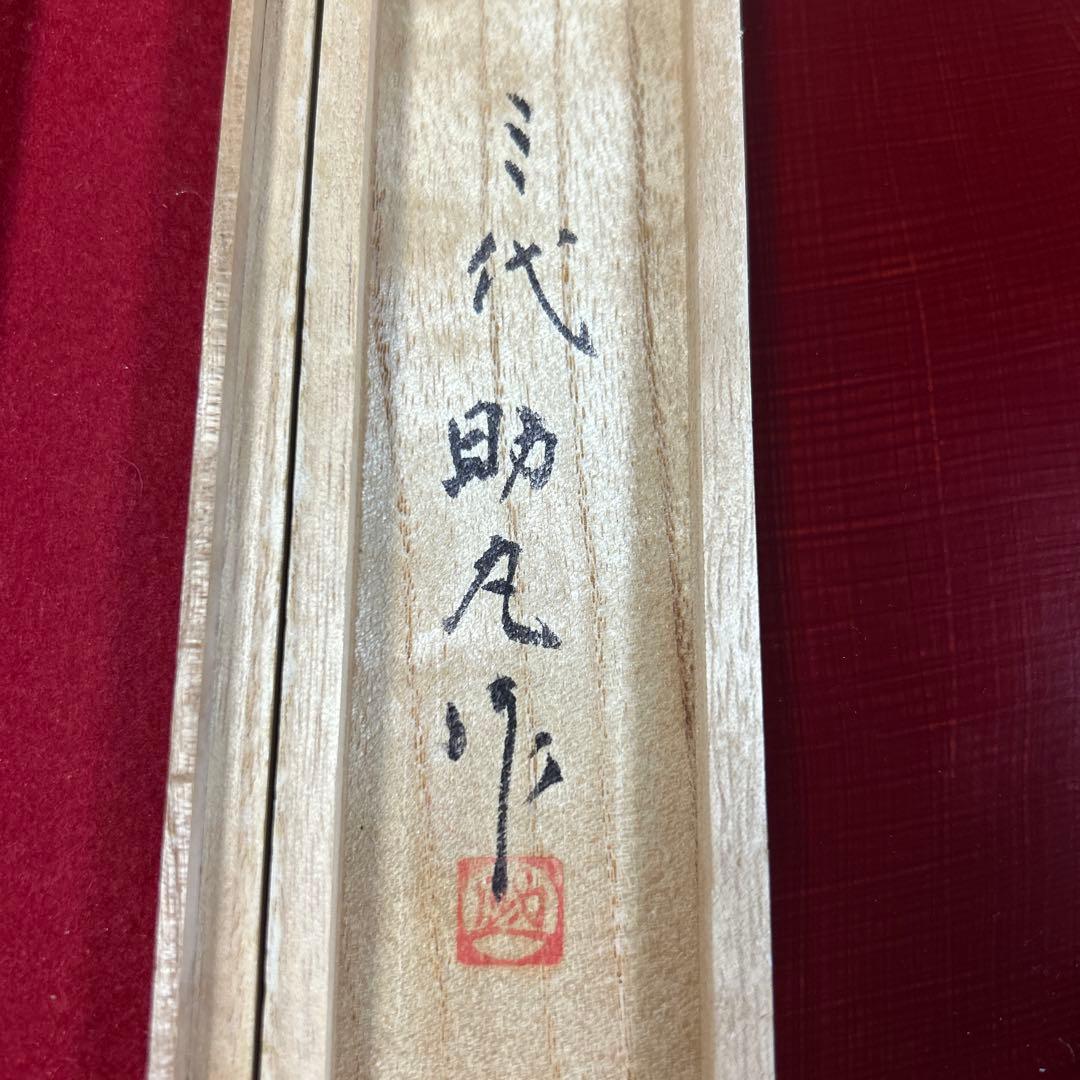 三代助丸作